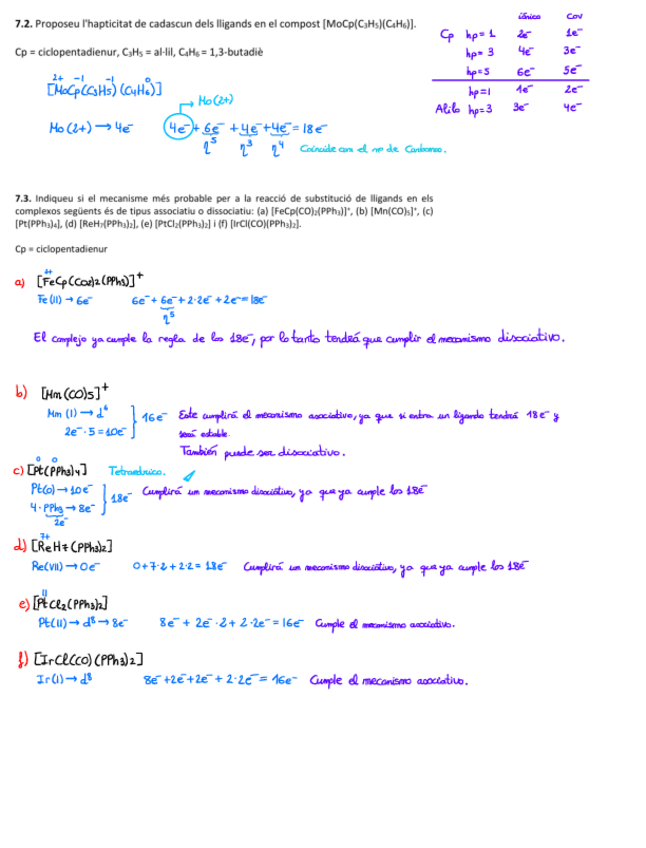 7.2. Proposeu l'hapticitat de cadascun dels lligands en el compost [MoCp(C₃H₅)(C₄H₆)].
Cp = ciclopentadienur, C₃H₅ = al·lil, C₄H₆ = 1,3-butadiè
iónico Cov
Cp hp=1 2e⁻ 1e⁻
hp=3 4e⁻ 3e⁻
hp=5 6e⁻ 5e⁻
hp=1 1e⁻ 2e⁻
Alilo hp=3 3e⁻ 4e⁻
2+ -1 -1 0
[MoCp(C₃H₅)(C₄H₆)]
Mo(2+)
Mo(2+) → 4e⁻ 4e⁻ + 6e⁻ + 4e⁻ + 4e⁻ = 18e⁻
η⁵ η³ η⁴ Coincide con el nº de Carbonos.
7.3. Indiqueu si el mecanisme més probable per a la reacció de substitució de lligands en els
complexos següents és de tipus associatiu o dissociatiu: (a) [FeCp(CO)₂(PPh₃)]⁺, (b) [Mn(CO)₅]⁺, (c)
[Pt(PPh₃)₄], (d) [ReH₇(PPh₃)₂], (e) [PtCl₂(PPh₃)₂] i (f) [IrCl(CO)(PPh₃)₂].
Cp = ciclopentadienur
a) [FeCp(CO)2(PPh3)]⁺
Fe(II) → 6e⁻ 6e⁻ + 6e⁻ + 2·2e⁻ + 2e⁻ = 18e⁻
η⁵
El complejo ya cumple la regla de los 18e⁻, por lo tanto tendrá que cumplir el mecanismo disociativo.
b) [Mn(CO)5]⁺
Mn(I) → d⁶
2e⁻·5 = 10e⁻ } 16e⁻ Este cumplirá el mecanismo asociativo, ya que si entra un ligando tendrá 18e⁻ y
será estable.
También puede ser disociativo.
0 0
c) [Pt(PPh3)4] Tetraédrico.
Pt(0) → 10e⁻
4·PPh3 → 8e⁻ } 18e⁻ Cumplirá un mecanismo disociativo, ya que ya cumple los 18e⁻
2e⁻
7+
d) [ReH7(PPh3)2]
Re(VII) → 0e⁻ 0+7·2+2·2 = 18e⁻ Cumplirá un mecanismo disociativo, ya que ya cumple los 18e⁻
II
e) [PtCl2(PPh3)2]
Pt(II) → d⁸ → 8e⁻ 8e⁻ + 2e⁻·2 + 2·2e⁻ = 16e⁻ Cumple el mecanismo asociativo.
f) [IrCl(CO)(PPh3)2]
Ir(I) → d⁸ 8e⁻ + 2e⁻ + 2e⁻ + 2·2e⁻ = 16e⁻ Cumple el mecanismo asociativo.